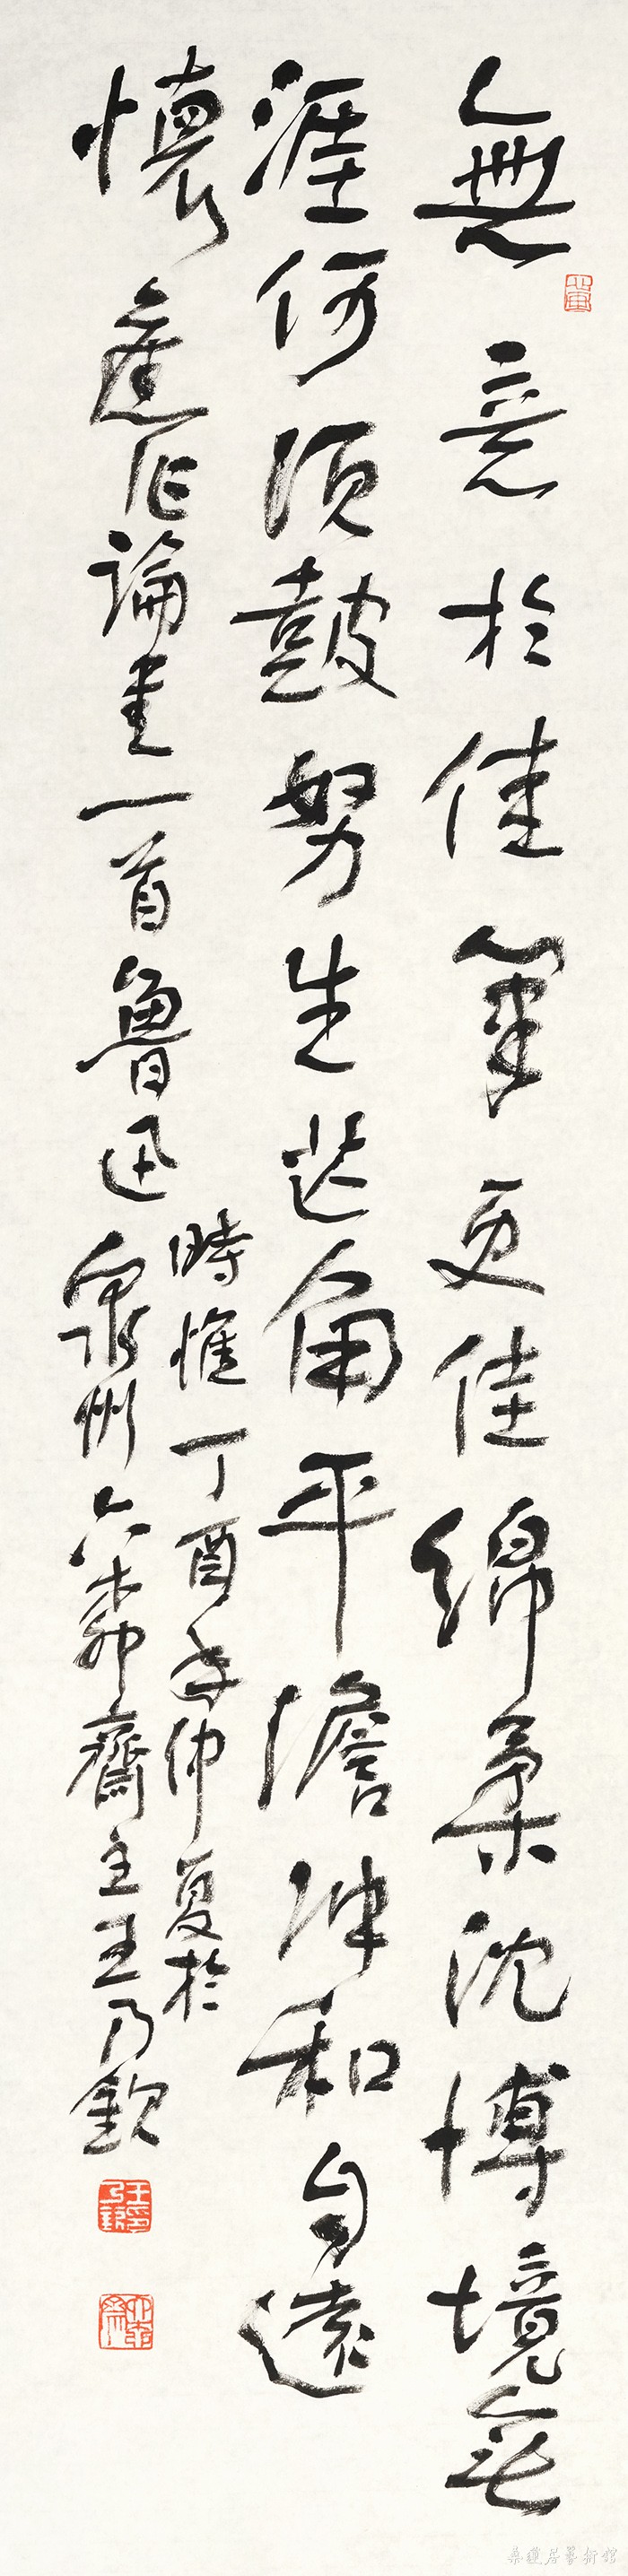 無意於佳筆更佳綿柔沈博境無
涯何須鼓努生芒角平澹沖和自遠
懷 舊作論書一首魯迅
時惟丁酉年仲夏於
泉州六桺齋主王乃欽
桑蓮居藝術館